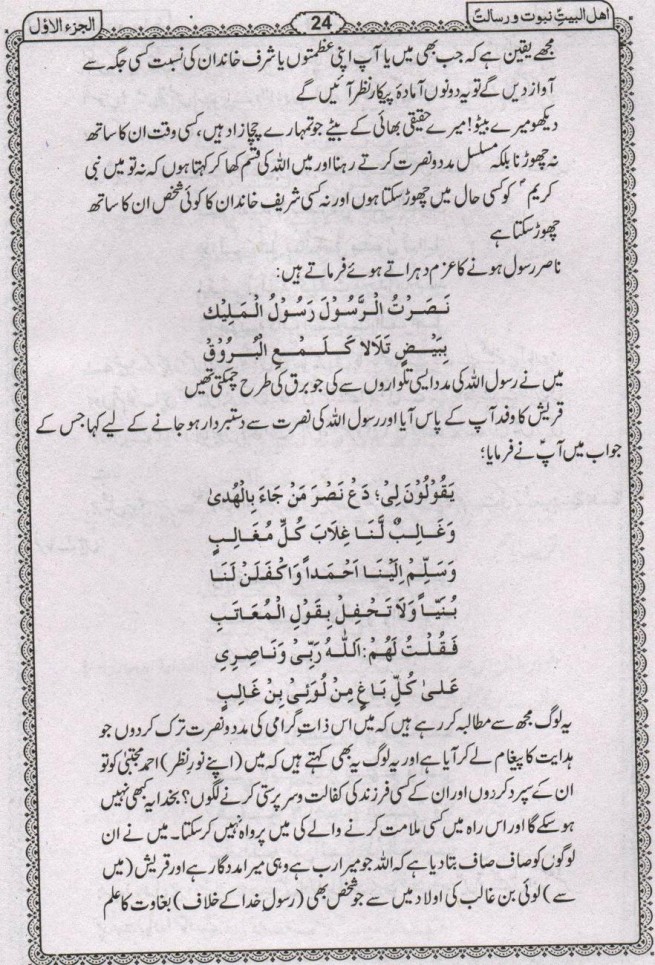 اھل البیتؑ نبوت و رسالتؐ
24
الجزء الاوّل
مجھے یقین ہے کہ جب بھی میں یا آپ اپنی عظمتوں یا شرف خاندان کی نسبت کسی جگہ سے
آواز دیں گے تو یہ دونوں آمادۂ پیکار نظر آئیں گے
دیکھو میرے بیٹو! میرے حقیقی بھائی کے بیٹے جو تمہارے چچا زاد ہیں، کسی وقت ان کا ساتھ
نہ چھوڑنا بلکہ مسلسل مدد و نصرت کرتے رہنا اور میں اللہ کی قسم کھا کر کہتا ہوں کہ نہ تو میں نبی
کریمؐ کو کسی حال میں چھوڑ سکتا ہوں اور نہ کسی شریف خاندان کا کوئی شخص ان کا ساتھ
چھوڑ سکتا ہے
ناصر رسول ہونے کا عزم دہراتے ہوئے فرماتے ہیں:
نَصَرْتُ الرَّسُوْلَ رَسُوْلَ الْمَلِيْك
بِبِيْضٍ تَلَالا كَلَمْعِ الْبُرُوْقْ
میں نے رسول اللہ کی مدد ایسی تلواروں سے کی جو برق کی طرح چمکتی تھیں
قریش کا وفد آپ کے پاس آیا اور رسول اللہ کی نصرت سے دستبردار ہو جانے کے لیے کہا جس کے
جواب میں آپؑ نے فرمایا؛
يَقُوْلُوْنَ لِيْ؛ دَعْ نَصْرَ مَنْ جَاءَ بِالْهُدىٰ
وَغَالِبْ لَّنَا غِلَابَ كُلِّ مُغَالِبٍ
وَسَلِّمْ اِلَيْنَا اَحْمَداً وَاكْفُلَنْ لَنَا
بُنَيّاً وَلَا تَحْفِلْ بِقَوْلِ الْمُعَاتَبِ
فَقُلْتُ لَهُمْ: اَللّٰهُ رَبِّيْ وَنَاصِرِيْ
عَلىٰ كُلِّ بَاغٍ مِنْ لُوَئِيْ بِنْ غَالِبٍ
یہ لوگ مجھ سے مطالبہ کر رہے ہیں کہ میں اس ذات گرامی کی مدد و نصرت ترک کر دوں جو
ہدایت کا پیغام لے کر آیا ہے اور یہ لوگ یہ بھی کہتے ہیں کہ میں (اپنے نورِ نظر) احمد مجتبیٰ کو تو
ان کے سپرد کر دوں اور ان کے کسی فرزند کی کفالت و سر پرستی کرنے لگوں؟ بخدا یہ کبھی نہیں
ہو سکے گا اور اس راہ میں کسی ملامت کرنے والے کی میں پرواہ نہیں کر سکتا۔ میں نے ان
لوگوں کو صاف صاف بتا دیا ہے کہ اللہ جو میرا رب ہے وہی میرا مددگار ہے اور قریش (میں
سے) لوئی بن غالب کی اولاد میں سے جو شخص بھی (رسولِ خدا کے خلاف) بغاوت کا علم